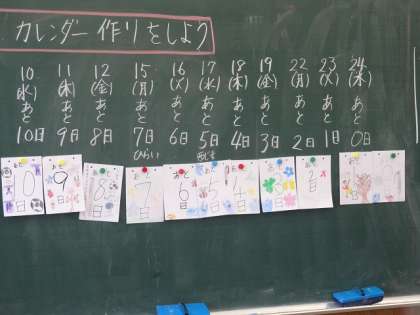 カレンダー作りをしよう
10 11 12 15 16 17 18 19 22 23 24
(水) (木) (金) (月) (火) (水) (木) (金) (月) (火) (木)
あと あと あと あと あと あと あと あと あと あと あと
10日 9日 8日 7日 6日 5日 4日 3日 2日 1日 0日
10日 9日 8日 7日 6日 5日 4日 3日 2日